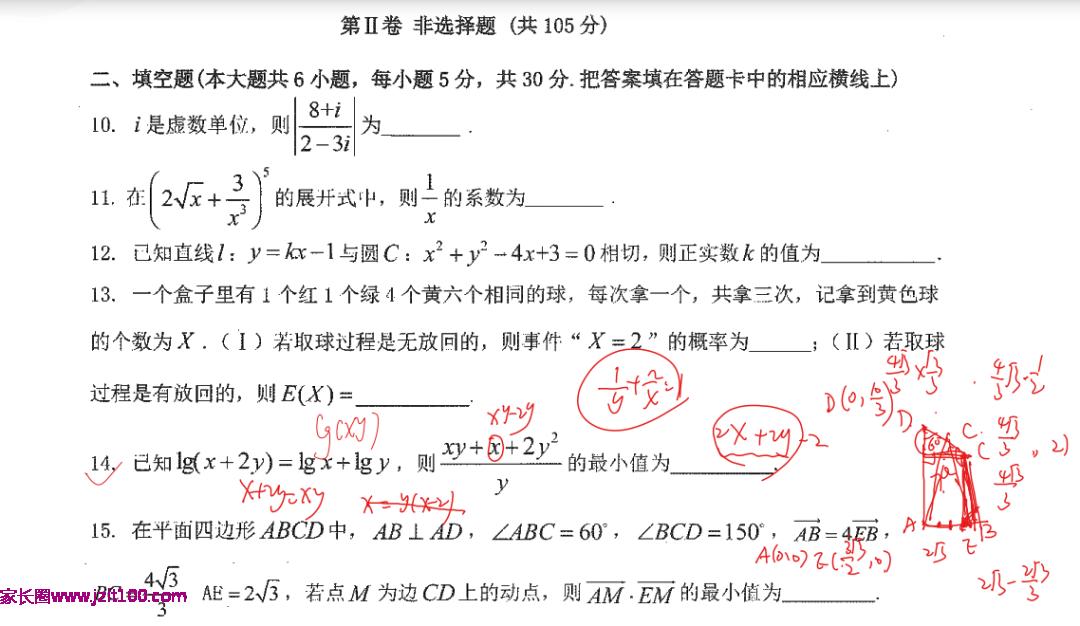 第Ⅱ卷 非选择题 (共 105 分)
二、填空题(本大题共 6 小题，每小题 5 分，共 30 分. 把答案填在答题卡中的相应横线上)
10. i 是虚数单位，则 |(8+i)/(2-3i)| 为______.
11. 在 (2√x + 3/x³)⁵ 的展开式中，则 1/x 的系数为______.
12. 已知直线 l：y=kx-1 与圆 C：x²+y²-4x+3=0 相切，则正实数 k 的值为______.
13. 一个盒子里有 1 个红 1 个绿 4 个黄六个相同的球，每次拿一个，共拿三次，记拿到黄色球
的个数为 X．（Ⅰ）若取球过程是无放回的，则事件“ X=2 ”的概率为______；（Ⅱ）若取球
过程是有放回的，则 E(X)=______.
1/y + 2/x = 1
4√3/3 × √3/3
D(0, 10/3)
D
C
lg(xy)
xy-2y
2x+2y-2
14. 已知 lg(x+2y)=lg x+lg y，则 (xy+x+2y²)/y 的最小值为______.
x+2y=xy
x=y(x-2)
15. 在平面四边形 ABCD 中，AB⊥AD，∠ABC=60°，∠BCD=150°，AB=4EB，
A
2√3
E
A(0,0)
2√3 - 2√3/3
家长圈www.jzit100.com
4√3/3 AE=2√3，若点 M 为边 CD 上的动点，则 AM·EM 的最小值为______.